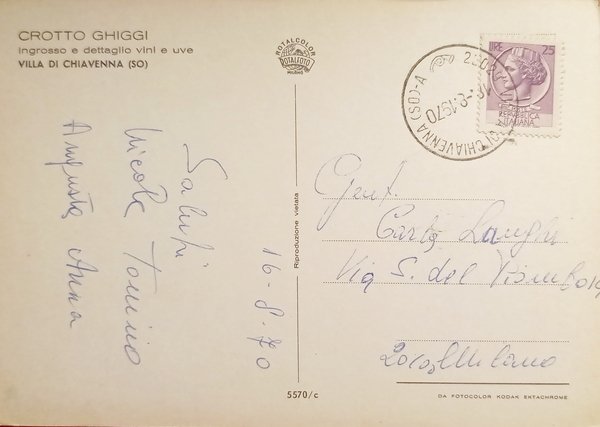 CROTTO GHIGGI
ingrosso e dettaglio vini e uve
VILLA DI CHIAVENNA (SO)
ROTALCOLOR
ROTALFOTO
MILANO
LIRE 25
REPUBBLICA
ITALIANA
DI CHIAVENNA (SO)-A
8.1970
Saluti
Nicola Tonino
Augusta Anna
16-8-70
Riproduzione vietata
Gent.
Carla Langhi
Via S. del Piombo
Milano
5570/c
DA FOTOCOLOR KODAK EKTACHROME